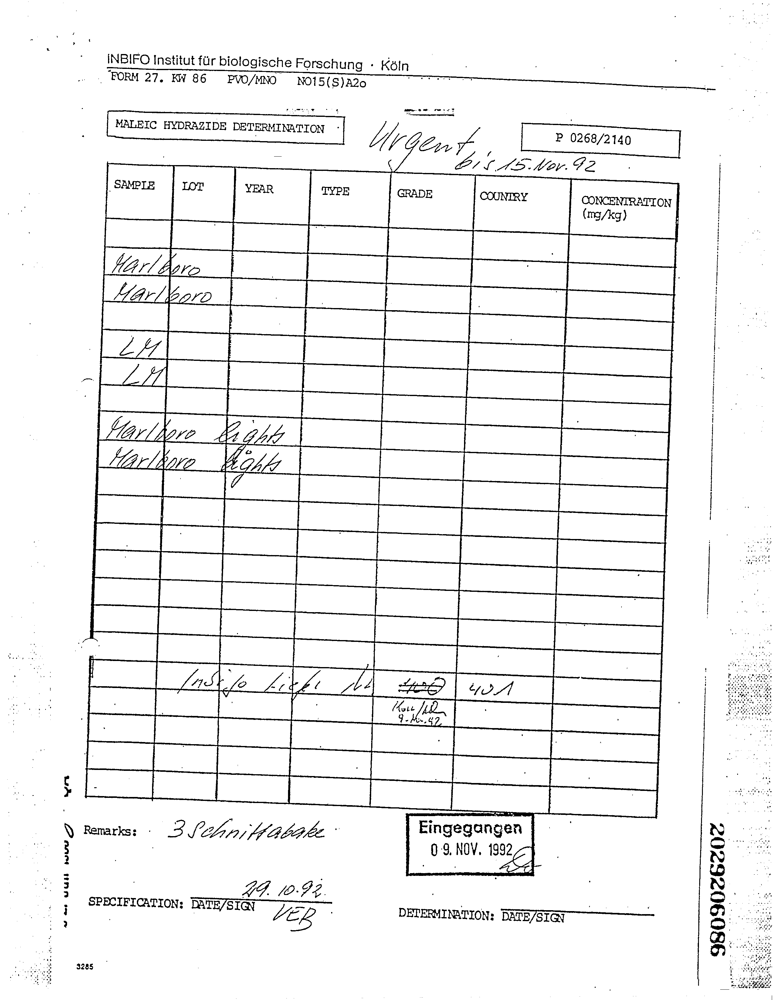 INBIFO Institut für biologische Forschung · Köln
FORM 27. KW 86 PVO/MNO NO15(S)A2o
MALEIC HYDRAZIDE DETERMINATION
Urgent
bis 15. Nov. 92
P 0268/2140
SAMPLE LOT YEAR TYPE GRADE COUNTRY CONCENTRATION (mg/kg)
Marlboro
Marlboro
LM
LM
Marlboro lights
Marlboro lights
401
Remarks: 3 Schnittabake
Eingegangen
09. NOV. 1992
29.10.92
SPECIFICATION: DATE/SIGN VEB
DETERMINATION: DATE/SIGN
3285
2029206086